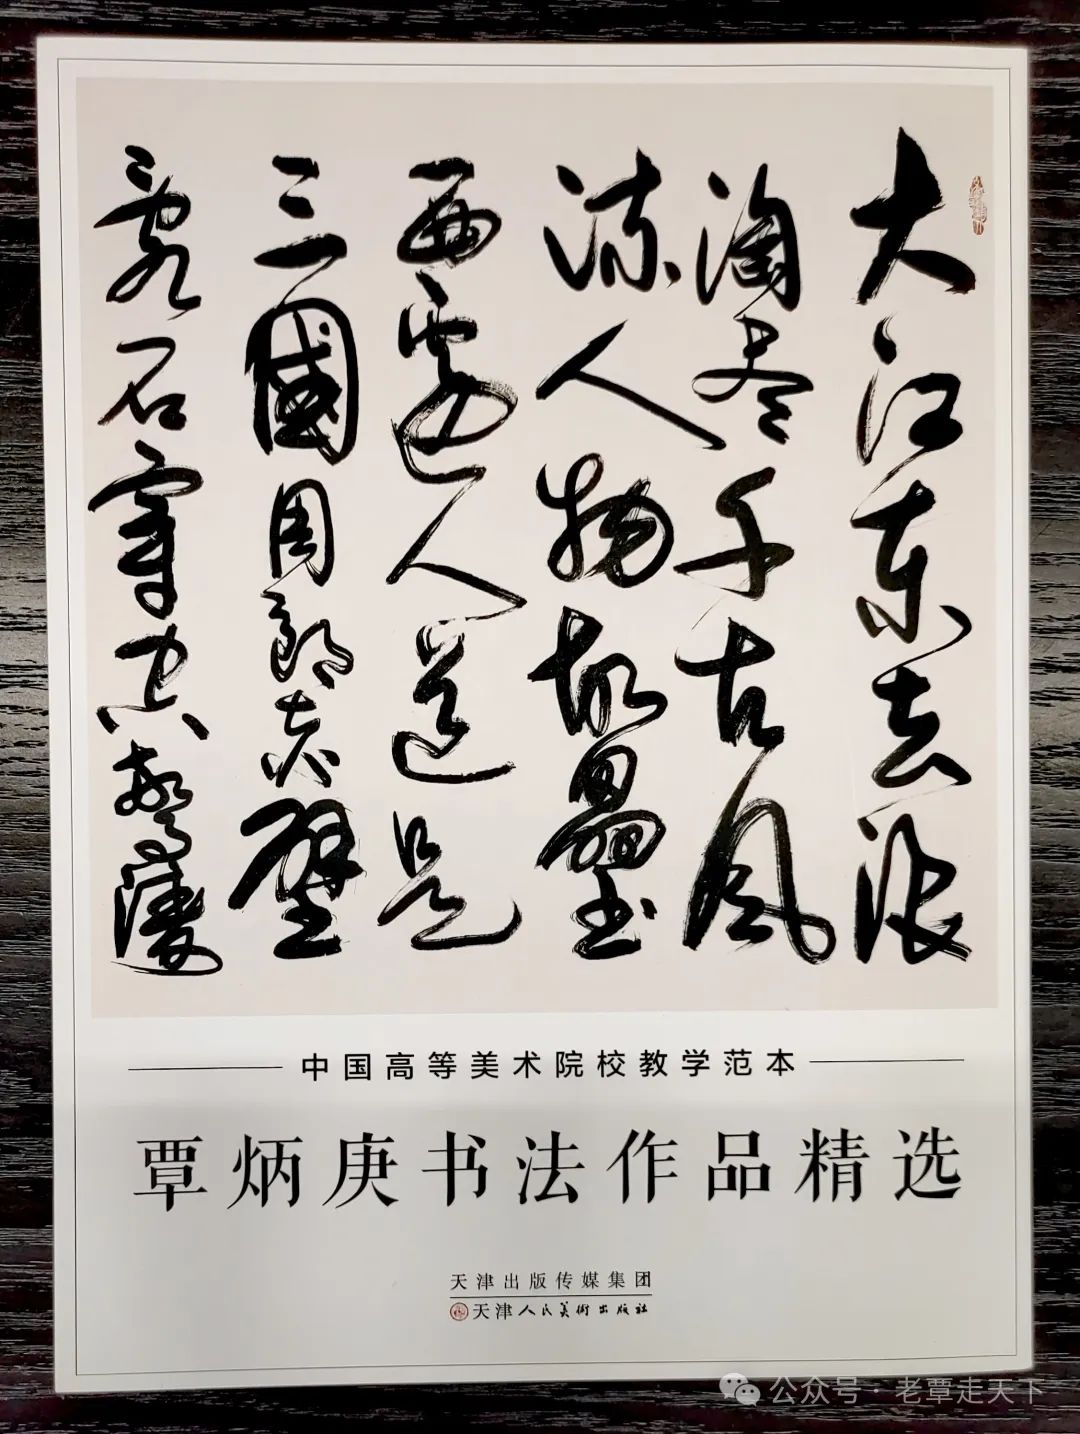 大江東去浪
淘盡千古風
流人物故壘
西邊人道是
三國周郎赤壁
亂石穿空驚濤
中国高等美术院校教学范本
覃炳庚书法作品精选
天津出版传媒集团
天津人民美術出版社
公众号·老覃走天下